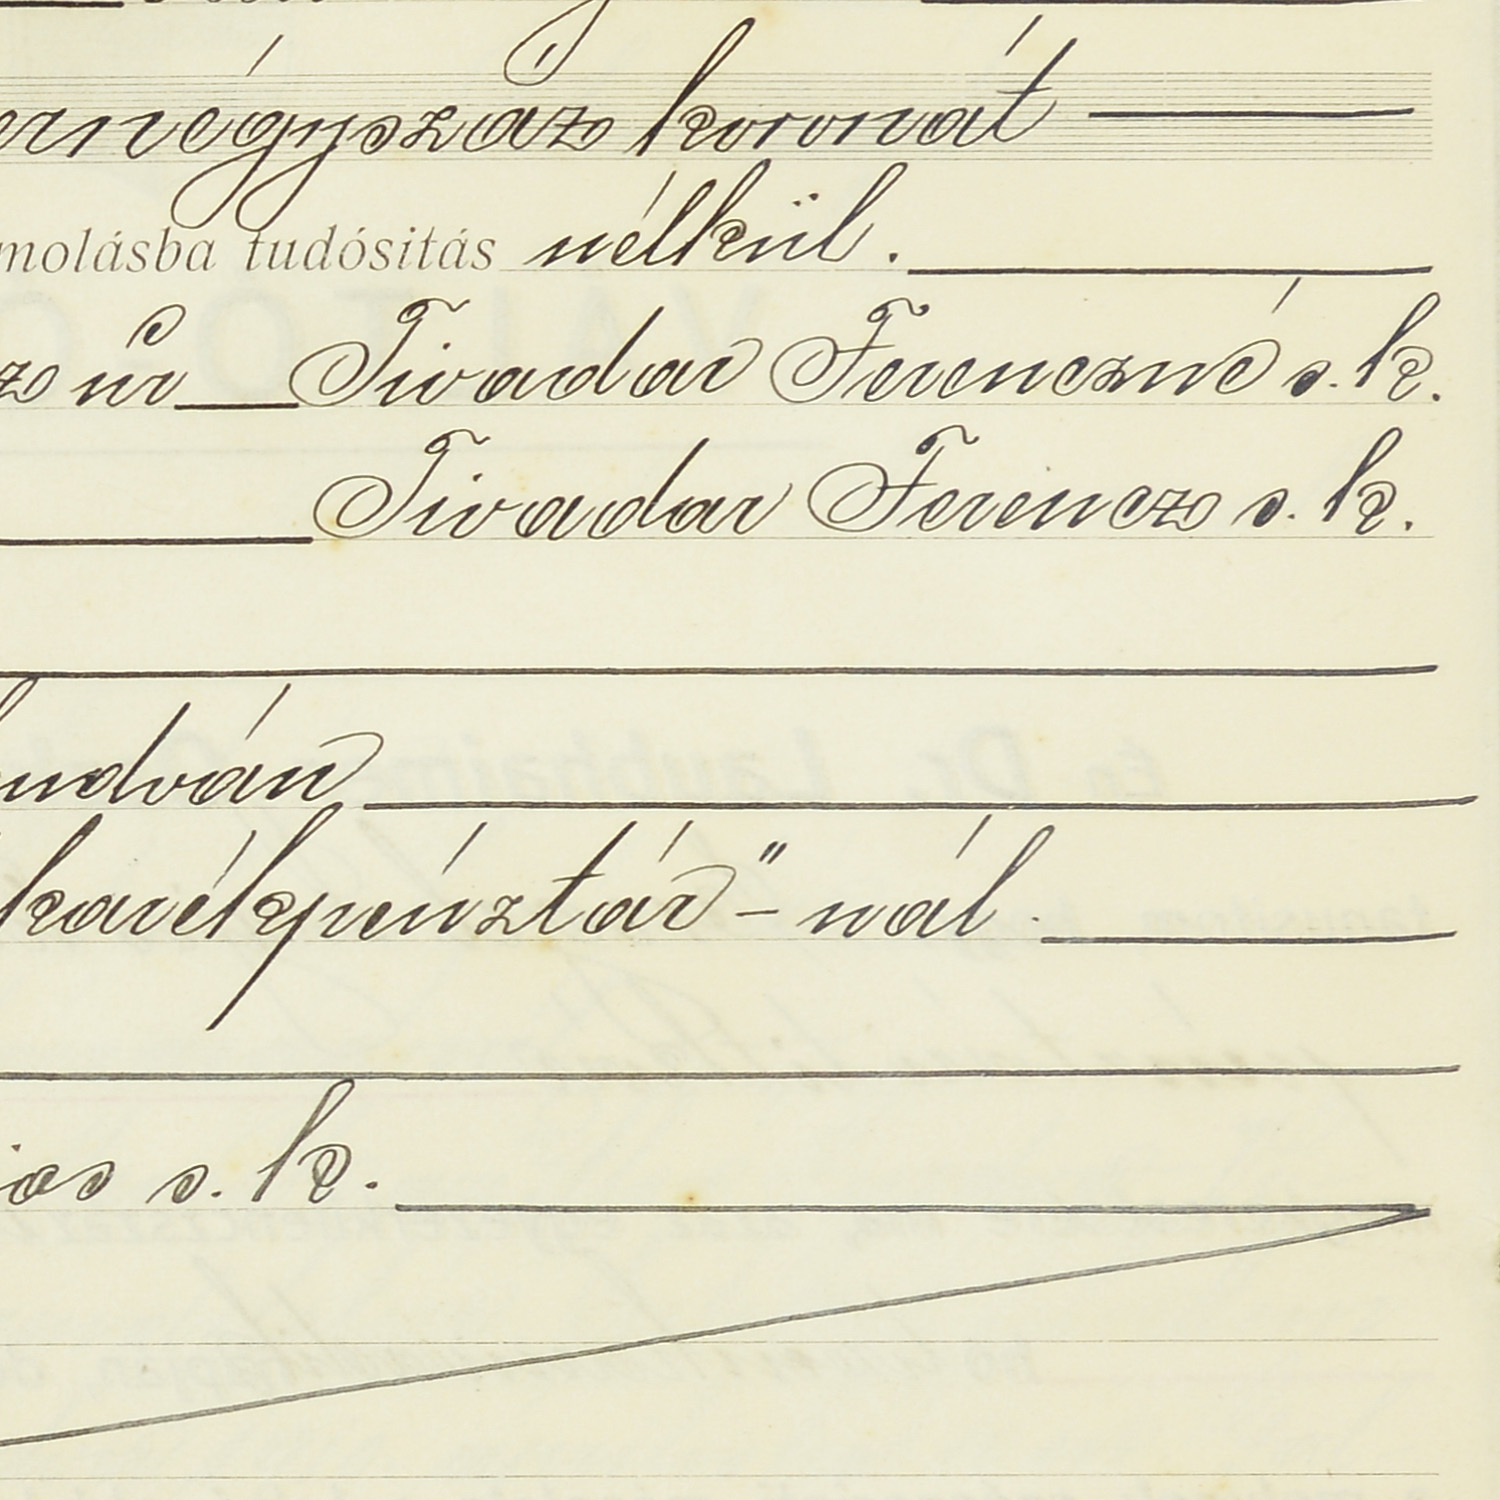 ernégyszáz koronát
molásba tudósitás nélkül.
z úr Tivadar Ferenczné s. k.
Tivadar Ferencz s. k.
ndván
karékpénztár" - nál.
jos s. k.